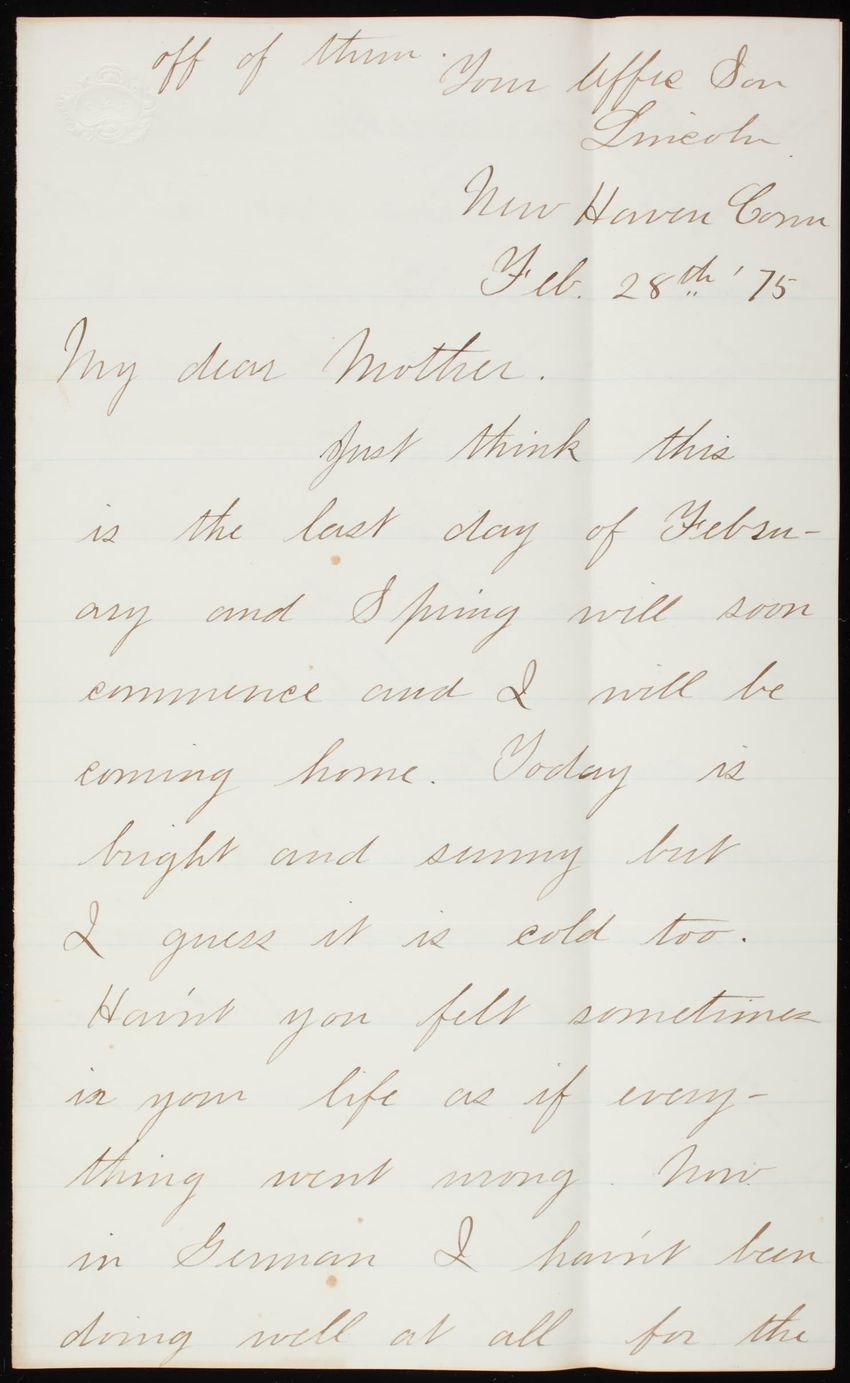 off of them.
Your Affec Son
Lincoln.
New Haven Conn
Feb. 28th '75
My dear Mother.
Just think this
is the last day of Febru-
ary and Spring will soon
commence and I will be
coming home. Today is
bright and sunny but
I guess it is cold too.
Hav'nt you felt sometimes
in your life as if every-
thing went wrong. Now
in German I hav'nt been
doing well at all for the